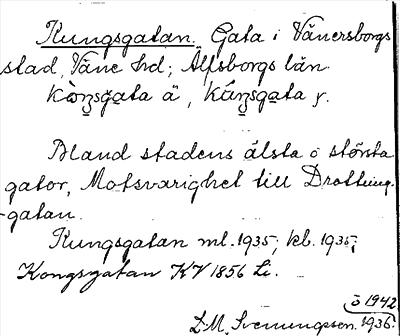 Kungsgatan. Gata i Vänersborgs
stad, Väne hd; Älfsborgs län.
kòŋsgata ä, kúŋsgata y.
Bland stadens älsta o största
gator, Motsvarighet till Drottning-
-gatan.
Kungsgatan ml. 1935; kb. 1935;
Kongsgatan KV 1856 Li.
ö 1942
L.M. Svenungson. 1936.